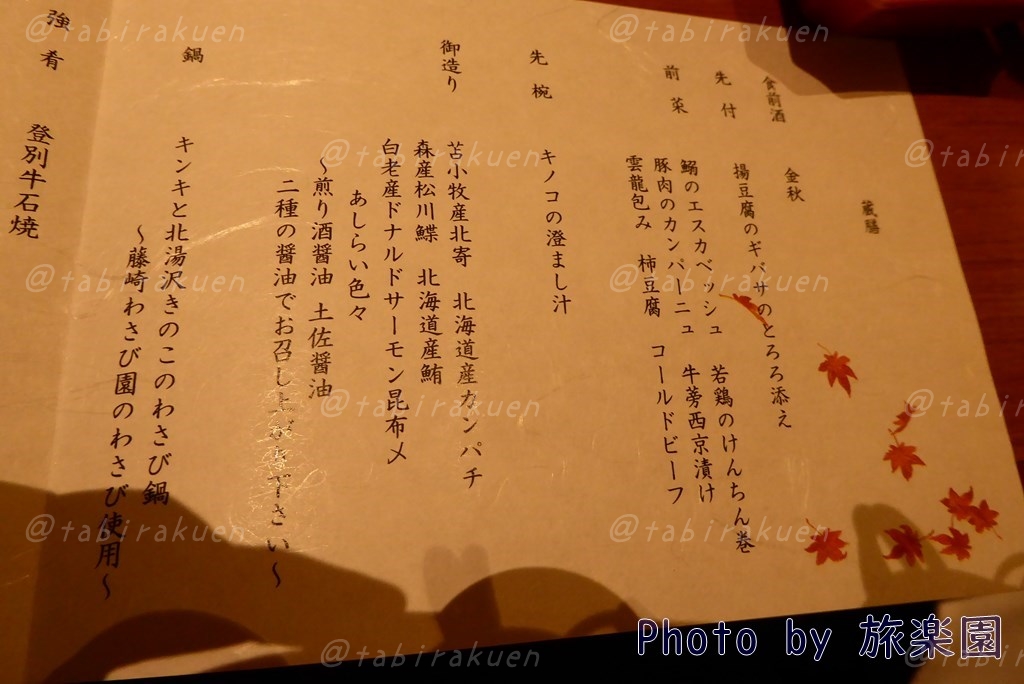 蔵膳
食前酒 金秋
先付 揚豆腐のギバサのとろろ添え
前菜 鰯のエスカベッシュ 若鶏のけんちん巻
豚肉のカンパーニュ 牛蒡西京漬け
雲龍包み 柿豆腐 コールドビーフ
先椀 キノコの澄まし汁
御造り 苫小牧産北寄 北海道産カンパチ
森産松川鰈 北海道産鮪
白老産ドナルドサーモン昆布〆
あしらい色々
〜煎り酒醤油 土佐醤油
二種の醤油でお召し上がり下さい〜
鍋 キンキと北湯沢きのこのわさび鍋
〜藤崎わさび園のわさび使用〜
強肴 登別牛石焼
Photo by 旅楽園
@tabirakuen